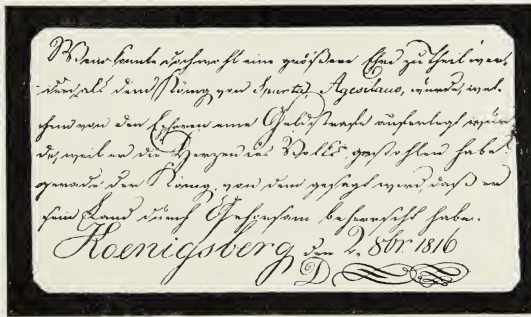 Wem konnte doch wohl eine größere Ehre zu Theil wer-
den, als dem König von Sparta, Agesilaus, wurde, wel-
chem von den Ephoren eine Geldstrafe auferlegt wur-
de, weil er die Herzen des Volks gestohlen habe
gerade der König, von dem gesagt wird, daß er
sein Land durch Gehorsam beherrscht habe.
Koenigsberg den 2. 8br. 1816
D